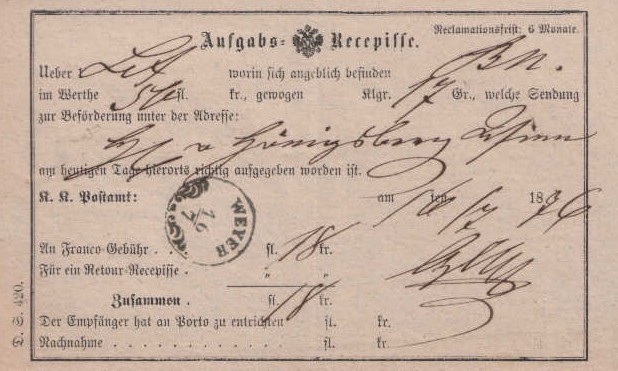 Aufgabs-Recepisse.
Reclamationsfrist: 6 Monate.
Ueber worin sich angeblich befinden Bn.
im Werthe fl. kr., gewogen Klgr. 17 Gr., welche Sendung
zur Beförderung unter der Adresse:
v Königsberg Wien
am heutigen Tage hierorts richtig aufgegeben worden ist.
K. K. Postamt: am 16 ten /7 1876
WEYER
16
7
An Franco-Gebühr . . fl. 18 kr.
Für ein Retour-Recepisse . " "
Zusammen . fl. 18 kr.
Der Empfänger hat an Porto zu entrichten fl. kr.
Nachnahme . . . . . . . . . . . fl. kr.
D. S. 420.